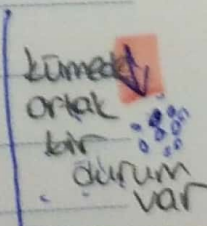 kümede
ortak
bir
durum
var